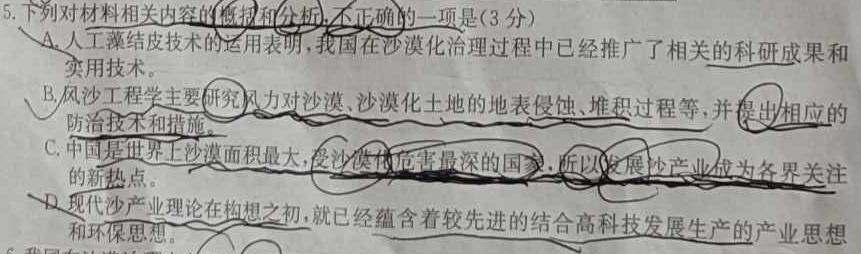 5.下列对材料相关内容的概括和分析,不正确的一项是(3分)
A.人工藻结皮技术的运用表明,我国在沙漠化治理过程中已经推广了相关的科研成果和
实用技术。
B.风沙工程学主要研究风力对沙漠、沙漠化土地的地表侵蚀、堆积过程等,并提出相应的
防治技术和措施。
C.中国是世界上沙漠面积最大,受沙漠化危害最深的国家,所以发展沙产业成为各界关注
的新热点。
D.现代沙产业理论在构想之初,就已经蕴含着较先进的结合高科技发展生产的产业思想
和环保思想。